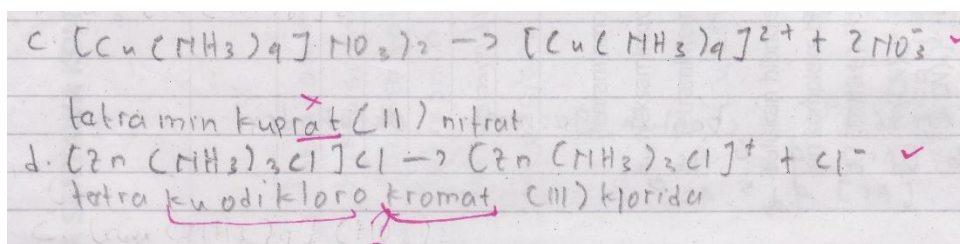 c. [Cu(NH3)4](NO3)2 -> [Cu(NH3)4]2+ + 2NO3-
tetramin kuprat (II) nitrat
d. [Zn(NH3)3Cl]Cl -> [Zn(NH3)3Cl]+ + Cl-
tetra kuodikloro kromat (III) klorida